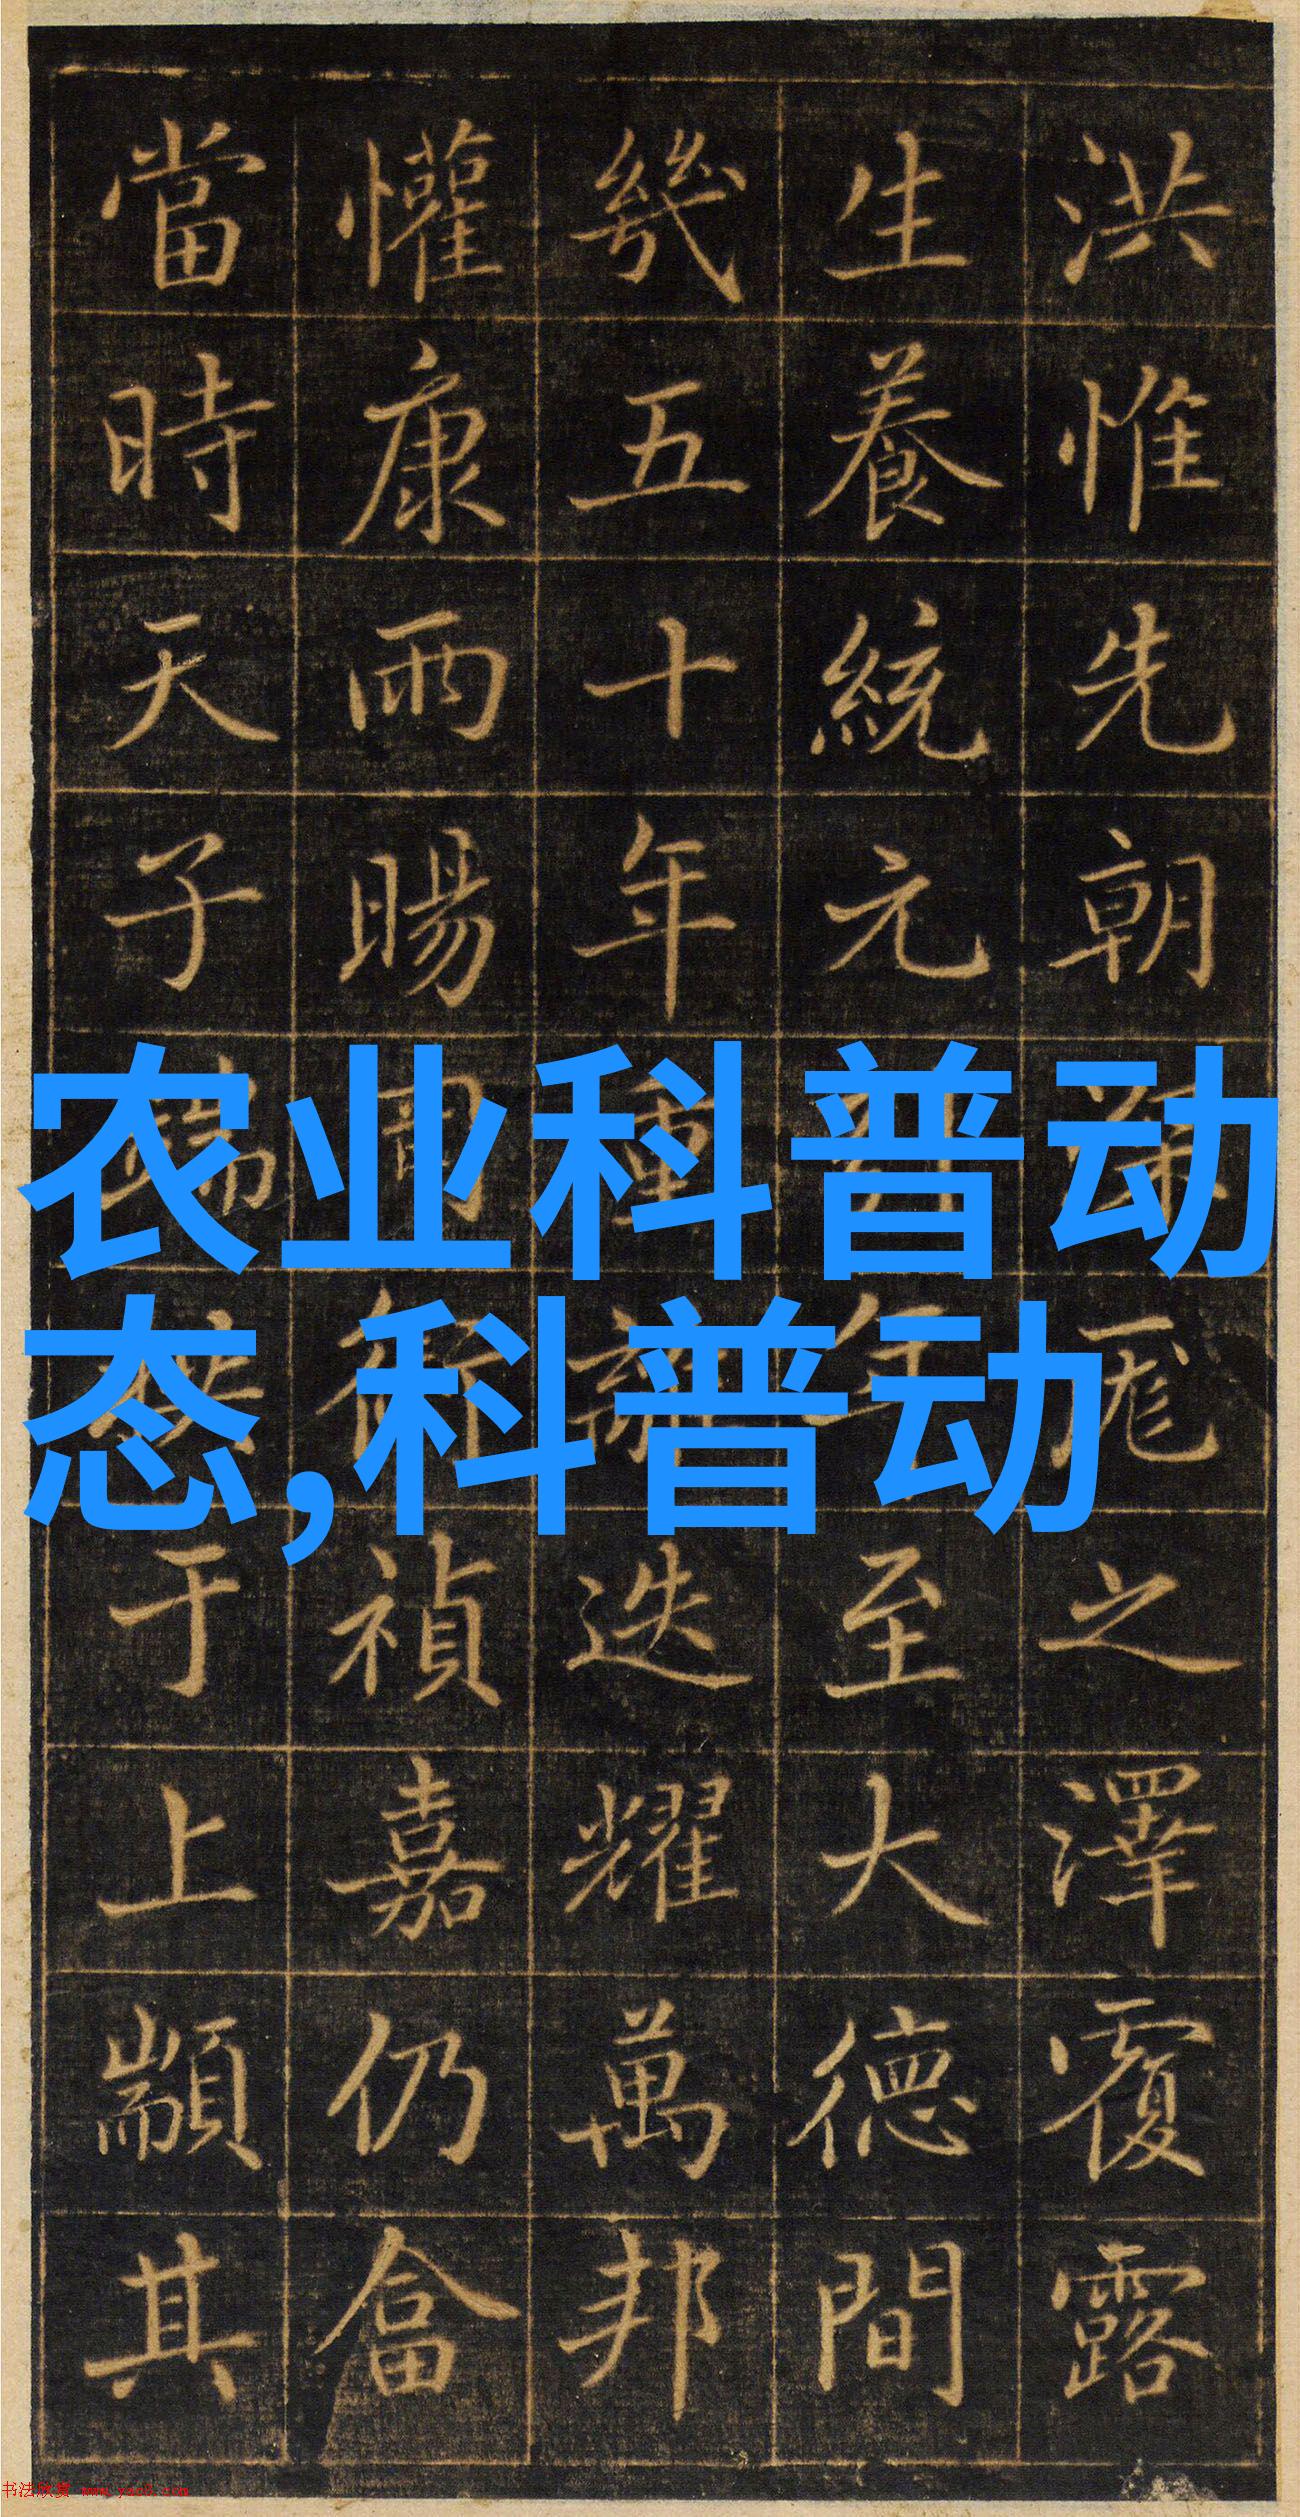 洪惟先朝之澤覆露
生養統元至大德間
幾五十年重迭耀萬邦
懽康雨暘禎嘉仍畬
當時天子于上顓其
农业科普动
态,科普动
书法欣赏 www.yac8.com